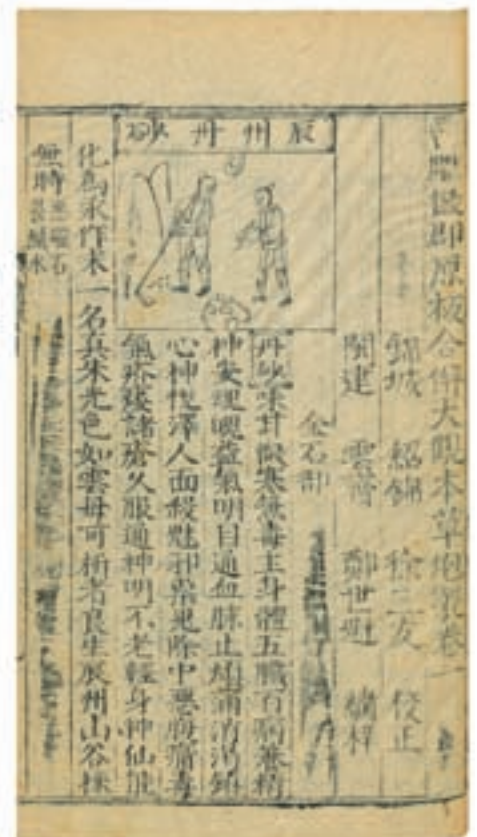 原板合併大觀本草炮製卷一
錦城 紹錦 徐三友 校正
閩建 雲齋 鄭世魁 繡梓
金石部
辰州丹砂
丹砂味甘微寒無毒主身體五臟百病養精
神安魂魄益氣明目通血脉止煩滿消渴鎮
心神悅澤人面殺魅邪惡鬼除中惡腹痛毒
氣疥瘻諸瘡久服通神明不老輕身神仙能
化為汞作末一名真朱光色如雲母可析者良生辰州山谷採
無時惡磁石畏鹹水